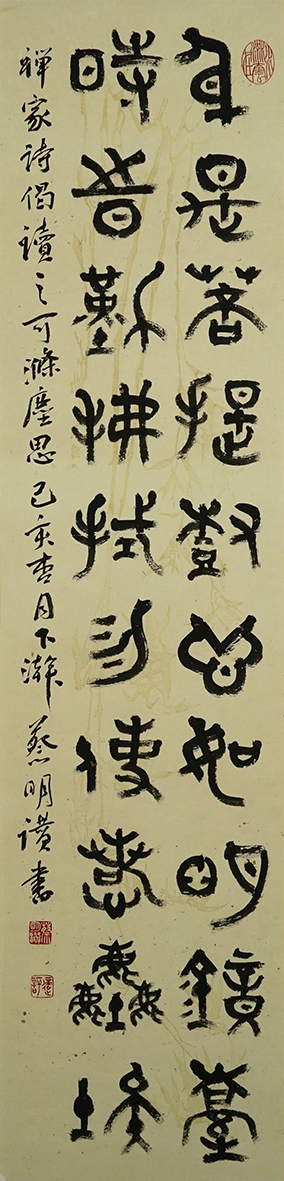 身是菩提樹心如明鏡臺
時旹勤拂拭勿使惹塵埃
禪家詩偈讀之可滌塵思己亥杏月下澣蔡明讚書